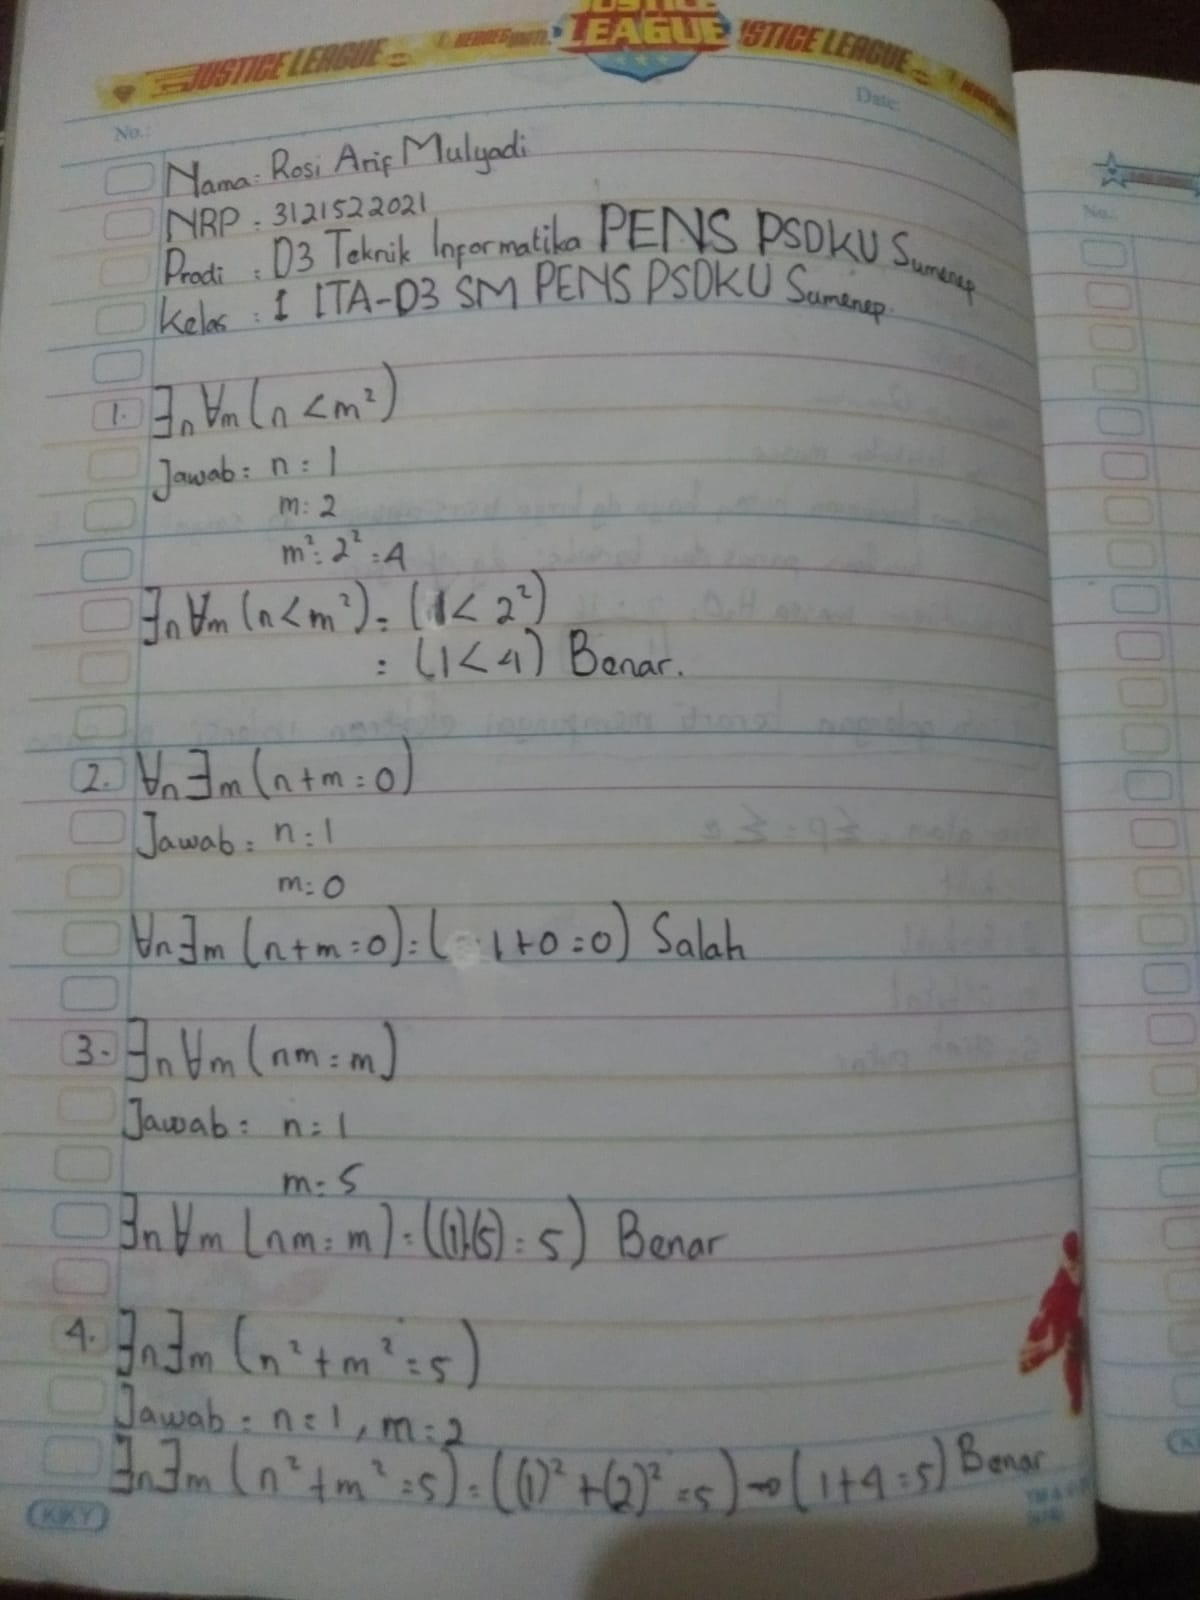 JUSTICE LEAGUE
JUSTICE LEAGUE
STICE LEAGUE
No.:
Date:
Nama : Rosi Arif Mulyadi
NRP : 3121522021
Prodi : D3 Teknik Informatika PENS PSDKU Sumenep
Kelas : 1 ITA-D3 SM PENS PSDKU Sumenep.
1. ∃n∀m(n<m²)
Jawab : n = 1
m = 2
m² = 2² = 4
∃n∀m(n<m²) = (1<2²)
= (1<4) Benar.
2. ∀n∃m(n+m=0)
Jawab : n = 1
m = 0
∀n∃m(n+m=0) = (1+0=0) Salah
3. ∃n∀m(nm=m)
Jawab : n = 1
m = 5
∃n∀m(nm=m) = ((1)(5)=5) Benar
4. ∃n∃m(n²+m²=5)
Jawab : n=1, m=2
∃n∃m(n²+m²=5) = ((1)²+(2)²=5) → (1+4=5) Benar
KIKY
No.: